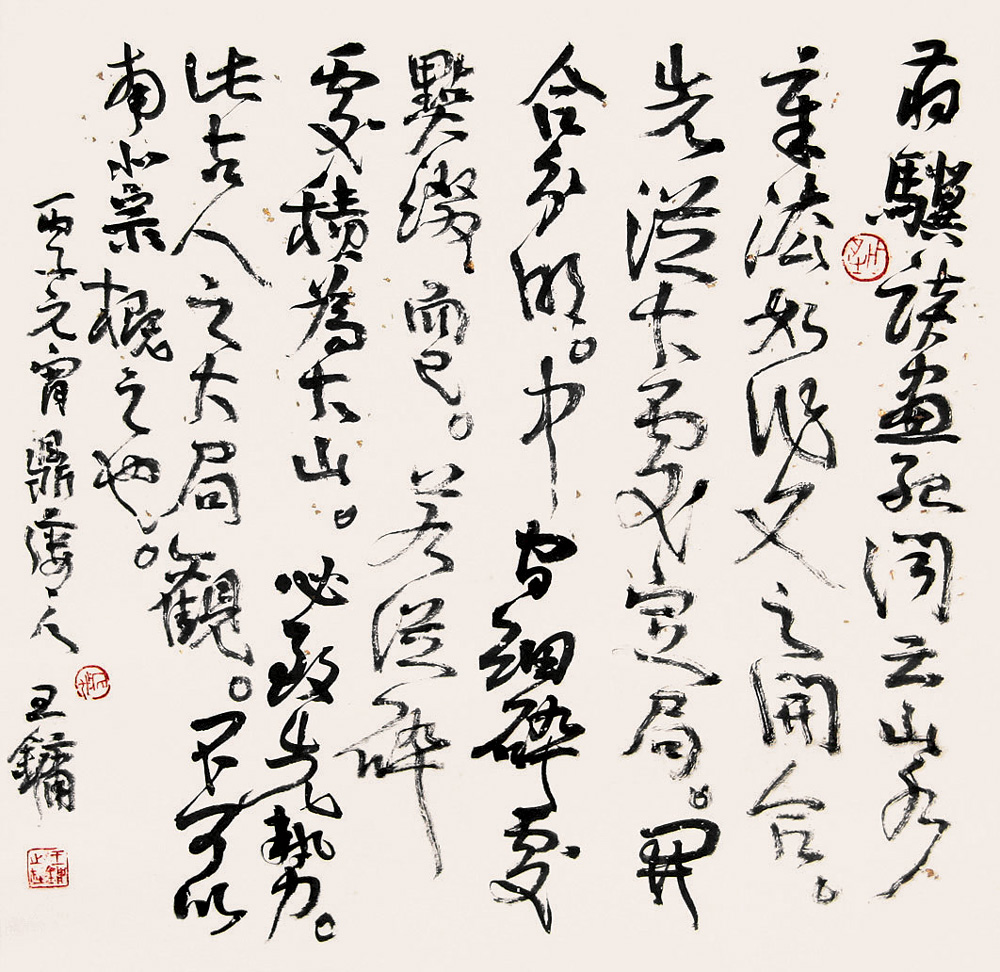 蒋驥读畫紀闻云山水
章法如作文之開合。
先從大處定局。開
合分明。中間細碎處
點綴而已。若從碎
處積為大山。必致失勢。
此古人之大局觀。不可以
南北宗概之也。
丙子元宵鼎廔主人 王鏞